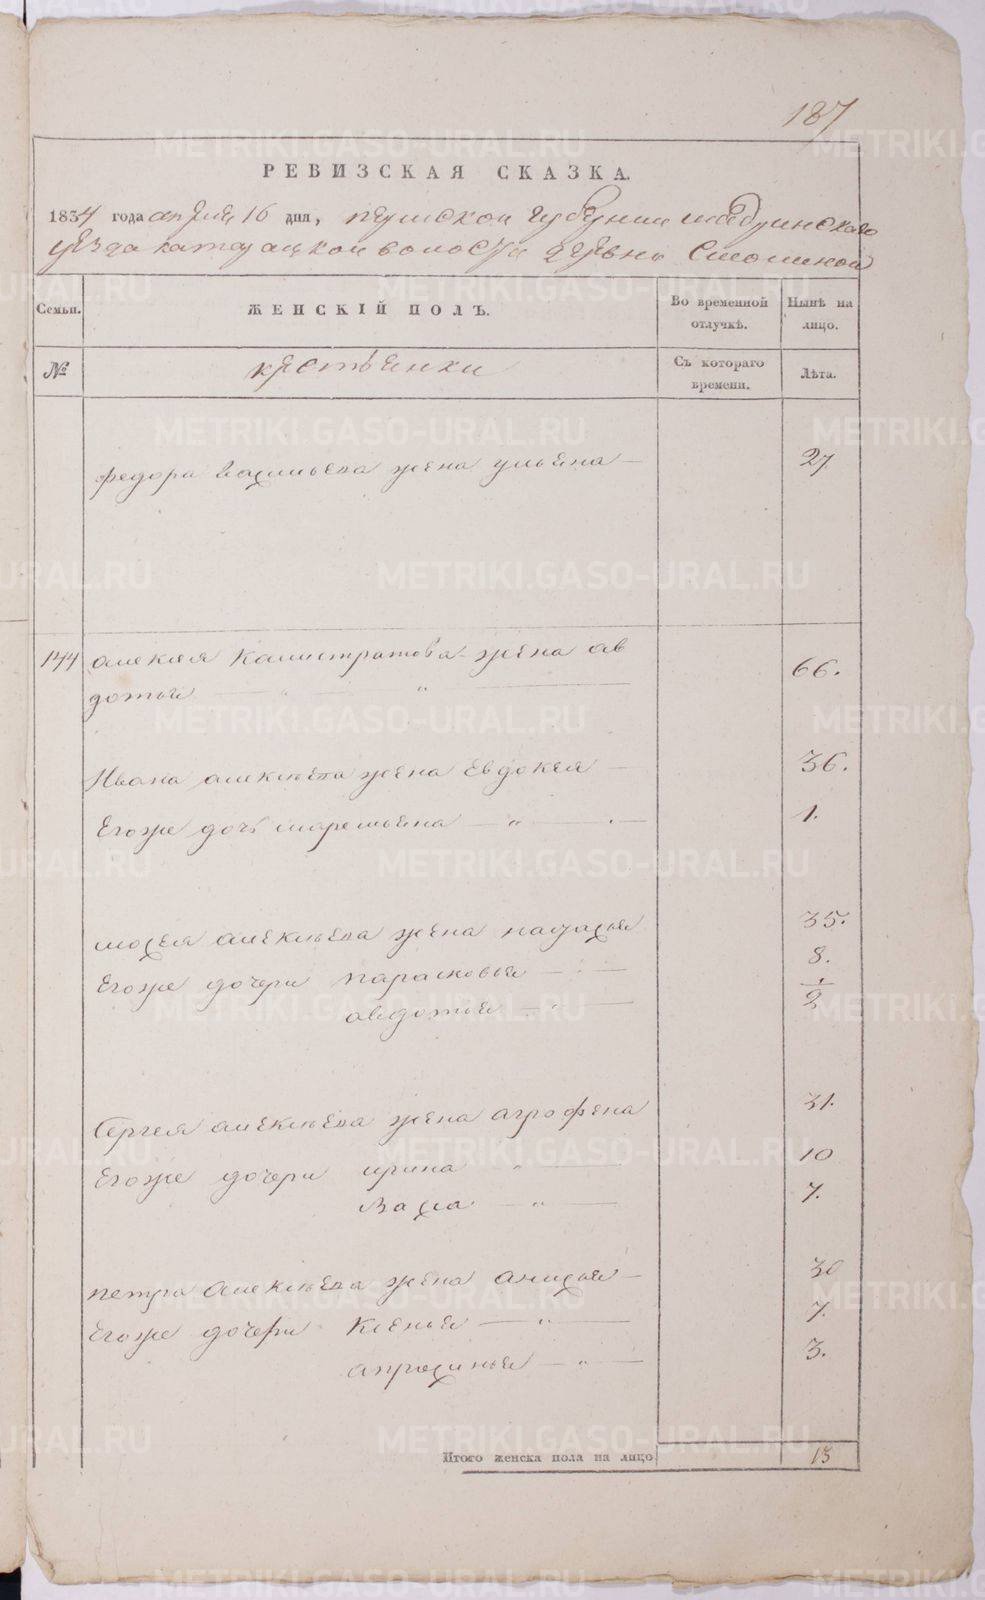 187
РЕВИЗСКАЯ СКАЗКА.
1834 года апреля 16 дня, пермской губернии шадринскаго
уезда катайской волости деревни Смолиной
Семьи.
ЖЕНСКІЙ ПОЛЪ.
Во временной отлучкѣ.
Нынѣ на лицо.
№
крестьянки
Съ котораго времени.
Лѣта.
федора васильева жена ульяна — 27
144 алексея Калистратова жена ав
дотья — „ — „ — 66.
Ивана алексеева жена Евдокея — 36.
Егоже дочь — „ — 1.
мосея алексеева жена наталья 35.
Егоже дочери парасковья — 8.
авдотья — 1/2
Сергея алексеева жена агрофена 31.
Егоже дочери ирина — „ — 10
Васса — „ — 7.
петра алексеева жена анисья — 30
Егоже дочери Ксенья — „ — 7.
апросинья — „ — 3.
Итого женска пола на лицо 13
METRIKI.GASO-URAL.RU